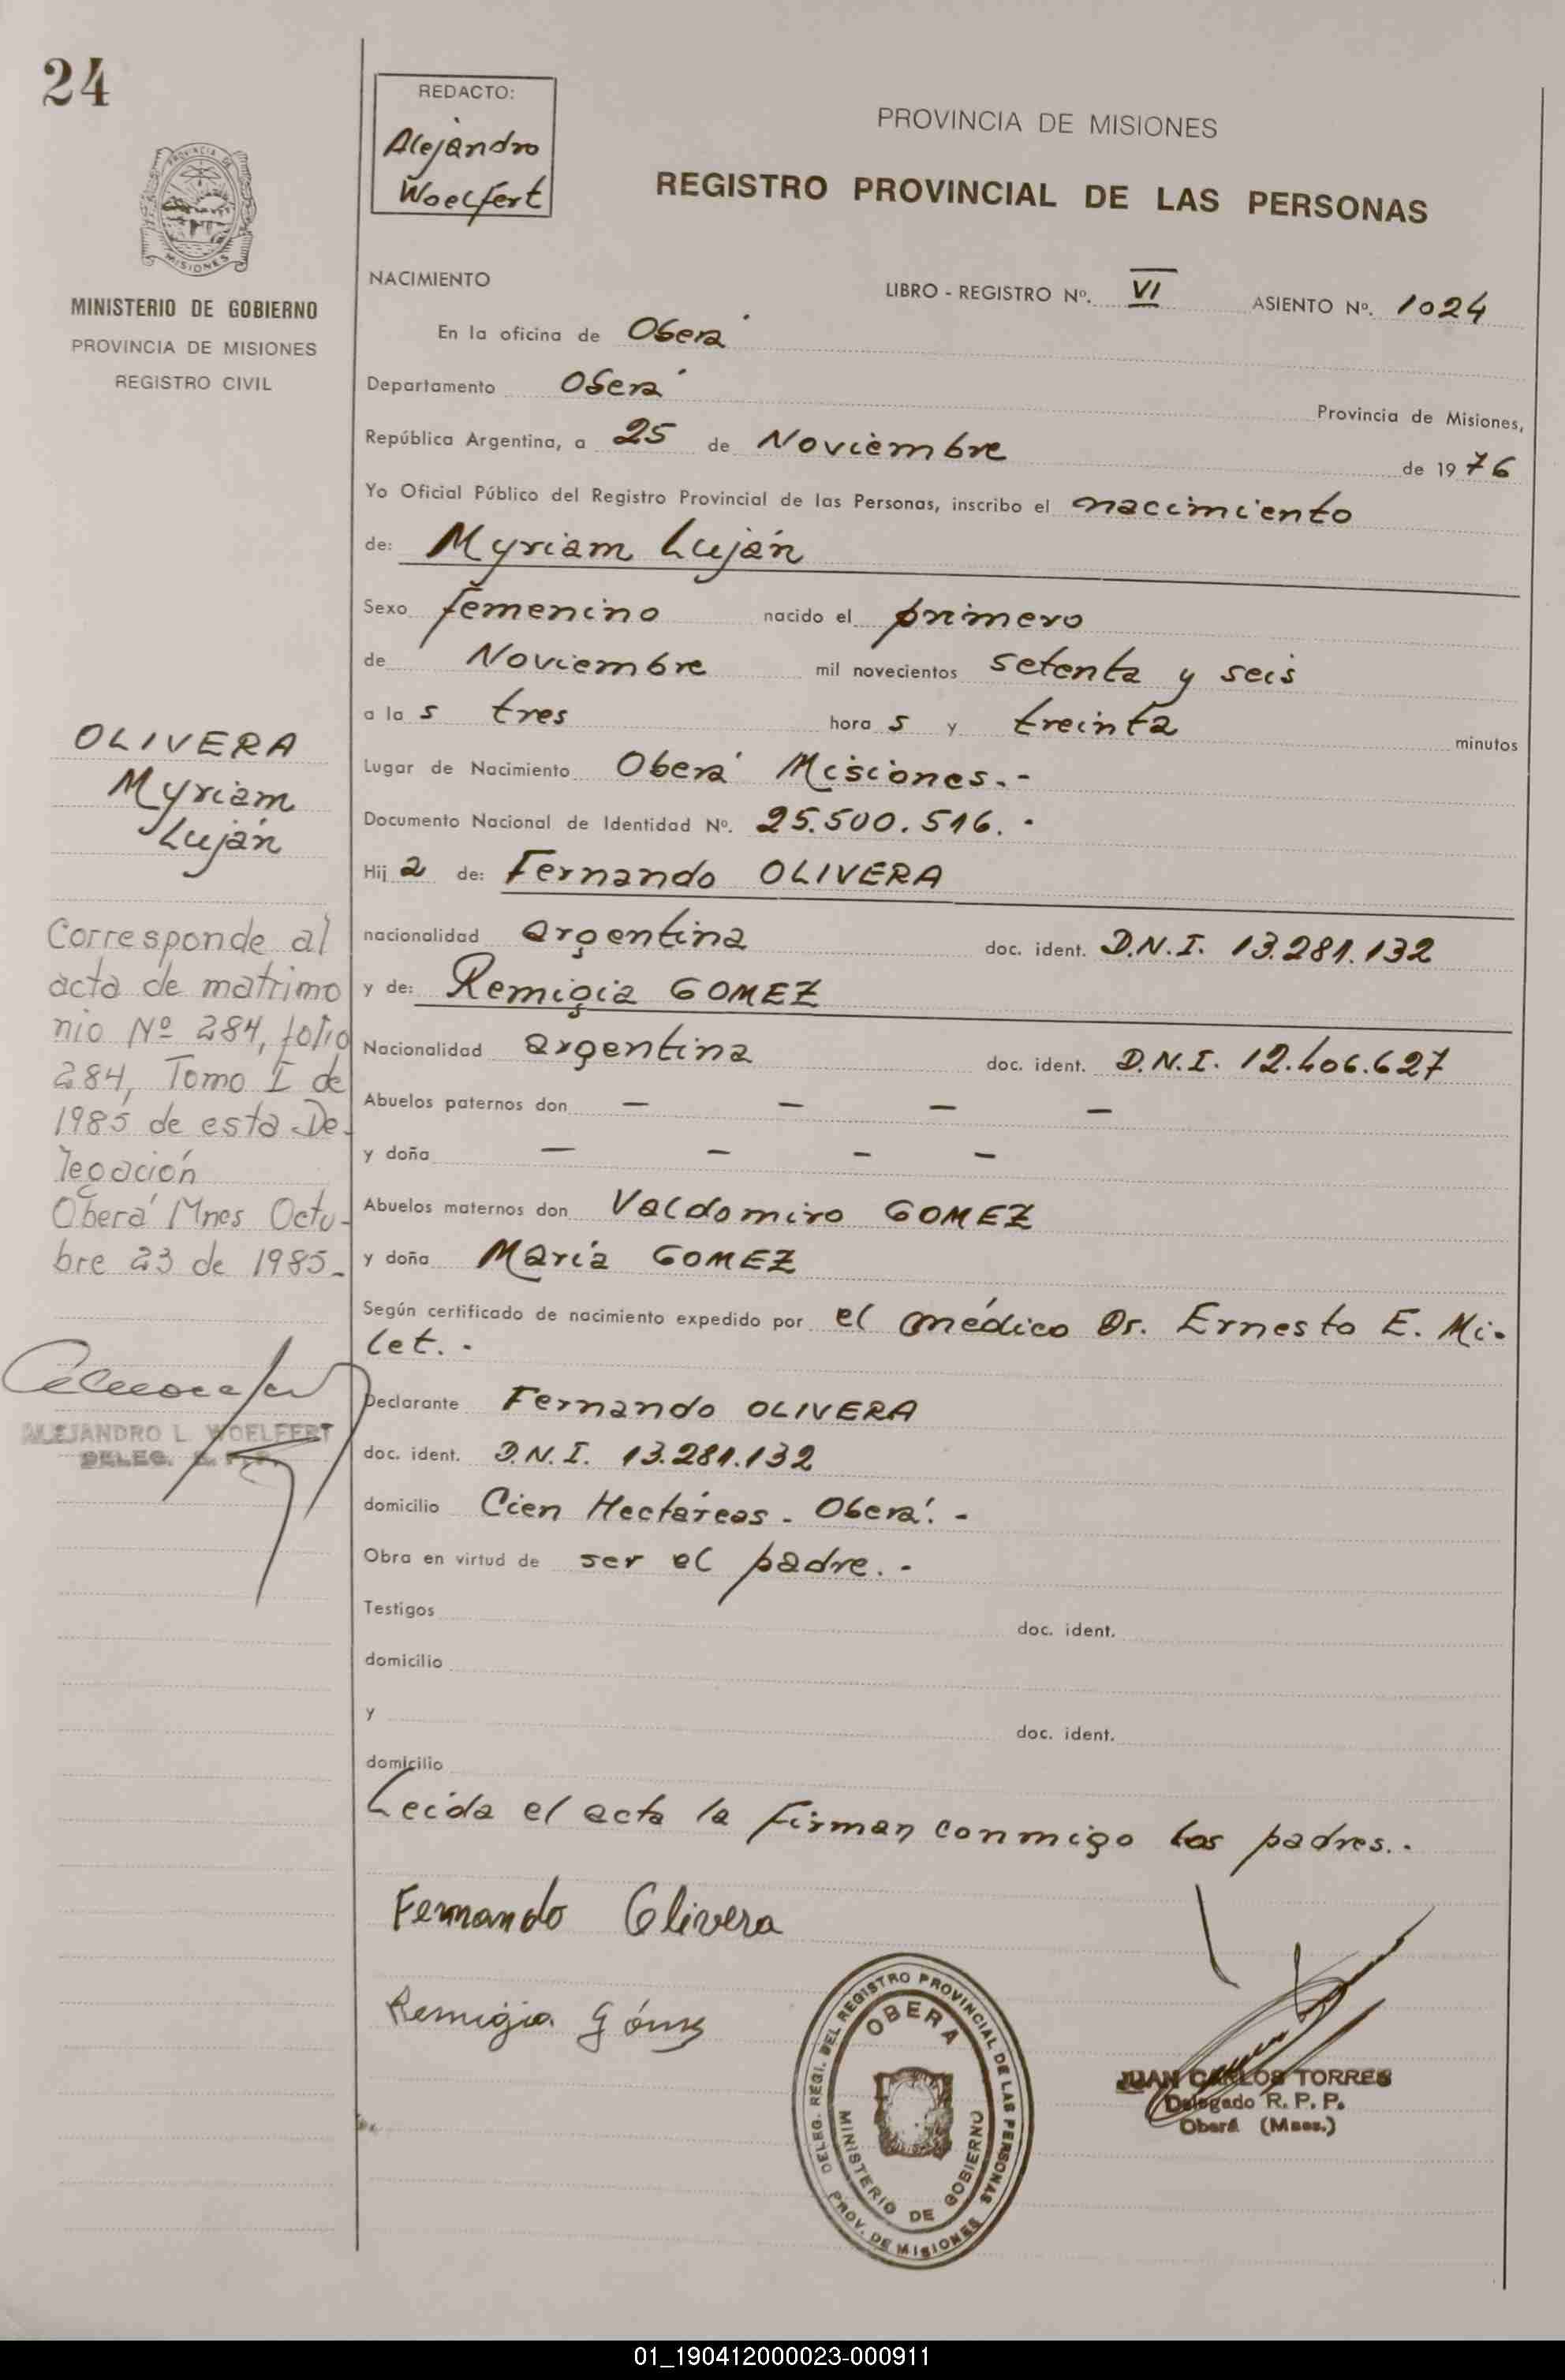 24
REDACTO:
Alejandro
Woelfert
PROVINCIA DE MISIONES
REGISTRO PROVINCIAL DE LAS PERSONAS
PROVINCIA DE
MISIONES
MINISTERIO DE GOBIERNO
PROVINCIA DE MISIONES
REGISTRO CIVIL
NACIMIENTO
LIBRO - REGISTRO Nº. VI ASIENTO Nº. 1024
En la oficina de Oberá
Departamento Oberá Provincia de Misiones,
República Argentina, a 25 de Noviembre de 1976
Yo Oficial Público del Registro Provincial de las Personas, inscribo el nacimiento
de: Myriam Luján
Sexo femenino nacido el primero
de Noviembre mil novecientos setenta y seis
a las tres horas y treinta minutos
Lugar de Nacimiento Oberá Misiones.-
Documento Nacional de Identidad Nº. 25.500.516.-
Hija de: Fernando OLIVERA
nacionalidad argentina doc. ident. D.N.I. 13.281.132
y de: Remigia GOMEZ
Nacionalidad argentina doc. ident. D.N.I. 12.406.627
Abuelos paternos don — — — —
y doña — — — —
Abuelos maternos don Valdomiro GOMEZ
y doña María GOMEZ
Según certificado de nacimiento expedido por el médico Dr. Ernesto E. Mi-
let.-
Declarante Fernando OLIVERA
doc. ident. D.N.I. 13.281.132
domicilio Cien Hectáreas - Oberá.-
Obra en virtud de ser el padre.-
Testigos doc. ident.
domicilio
y doc. ident.
domicilio
Leida el acta la firman conmigo los padres.-
Fernando Olivera
Remigia Gómez
OLIVERA
Myriam
Luján
Corresponde al
acta de matrimo
nio Nº 284, folio
284, Tomo I de
1985 de esta De-
legación
Oberá Mnes Octu-
bre 23 de 1985.-
ALEJANDRO L. WOELFERT
DELEG. R. P. P.
DELEG. REGI. DEL REGISTRO PROVINCIAL DE LAS PERSONAS
PROV. DE MISIONES
OBERA
MINISTERIO DE GOBIERNO
JUAN CARLOS TORRES
Delegado R. P. P.
Oberá (Mnes.)
01_190412000023-000911